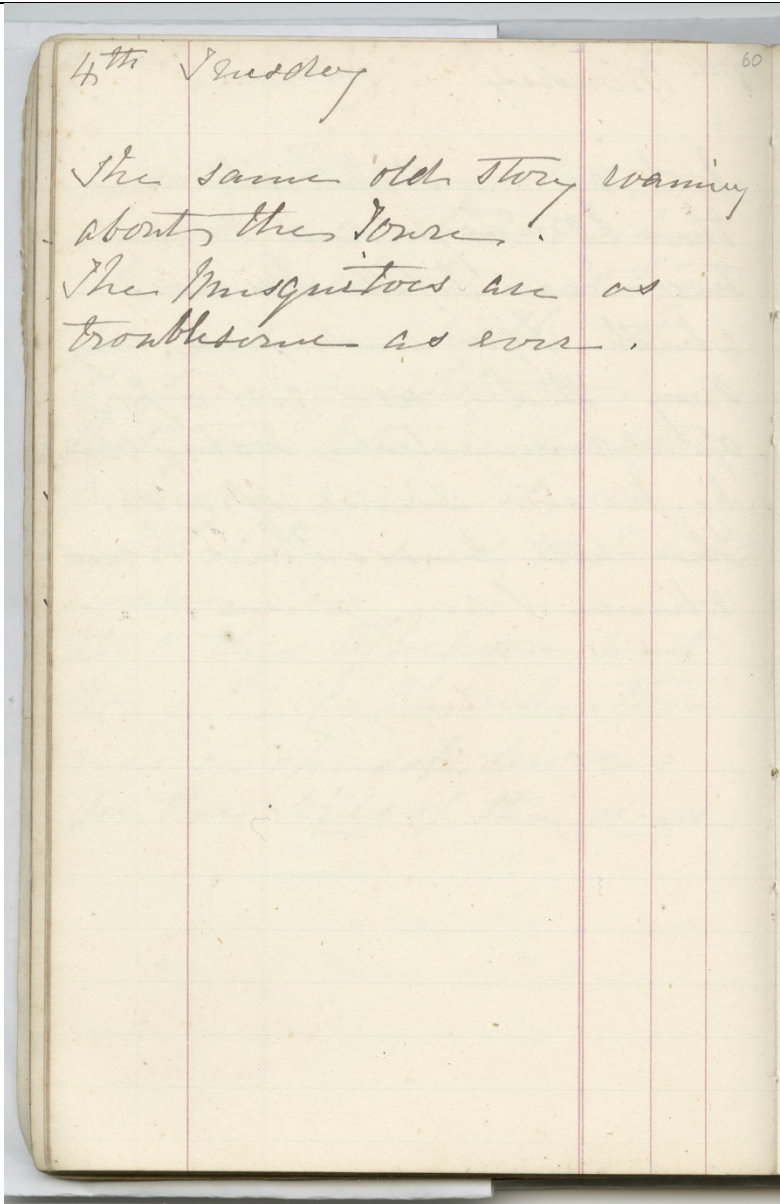 60
4th Tuesday
The same old story roaming
about the Town.
The Musquitoes are as
troublesome as ever.